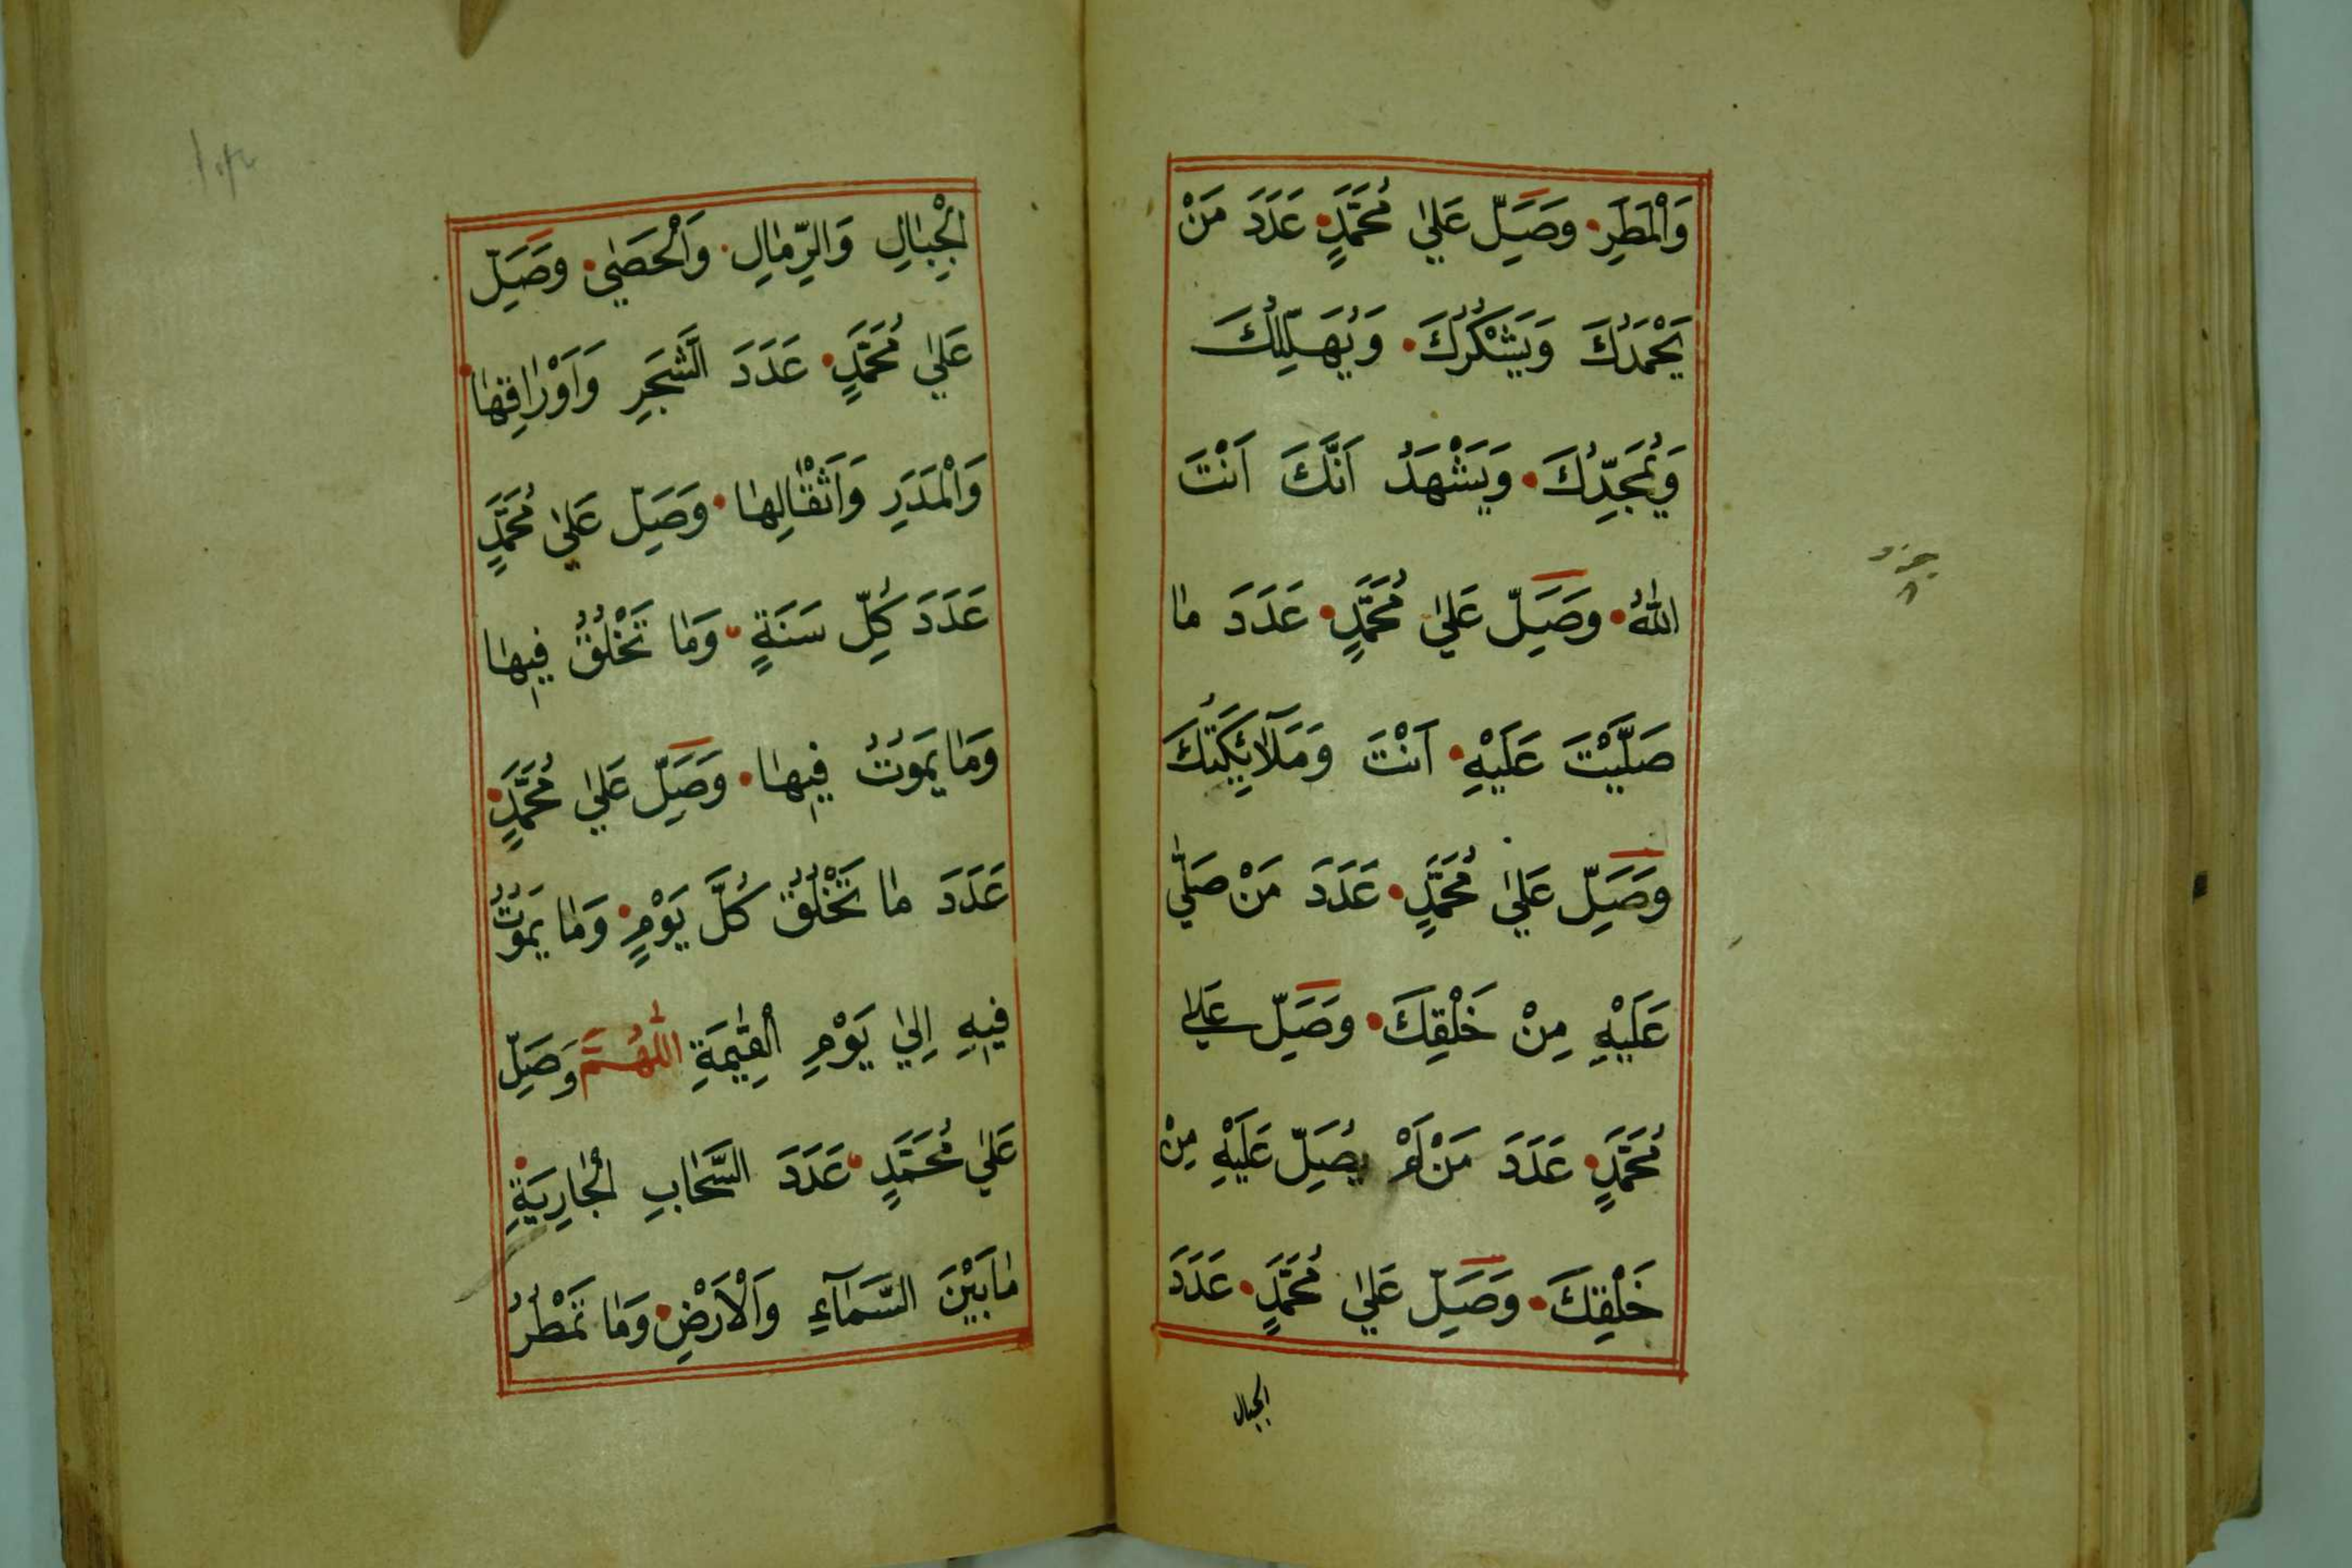 وَالْمَطَرِ وَصَلِّ عَلٰي مُحَمَّدٍ عَدَدَ مَنْ
يَحْمَدُكَ وَيَشْكُرُكَ وَيُهَلِّلُكَ
وَيُمَجِّدُكَ وَيَشْهَدُ اَنَّكَ اَنْتَ
اللّٰهُ وَصَلِّ عَلٰي مُحَمَّدٍ عَدَدَ مٰا
صَلَّيْتَ عَلَيْهِ اَنْتَ وَمَلَآئِكَتُكَ
وَصَلِّ عَلٰي مُحَمَّدٍ عَدَدَ مَنْ صَلّٰي
عَلَيْهِ مِنْ خَلْقِكَ وَصَلِّ عَلٰي
مُحَمَّدٍ عَدَدَ مَنْ لَمْ يُصَلِّ عَلَيْهِ مِنْ
خَلْقِكَ وَصَلِّ عَلٰي مُحَمَّدٍ عَدَدَ
الجبال
الْجِبٰالِ وَالرِّمٰالِ وَالْحَصٰي وَصَلِّ
عَلٰي مُحَمَّدٍ عَدَدَ الشَّجَرِ وَاَوْرٰاقِهٰا
وَالْمَدَرِ وَاَثْقٰالِهٰا وَصَلِّ عَلٰي مُحَمَّدٍ
عَدَدَ كُلِّ سَنَةٍ وَمٰا تَخْلُقُ فِيهٰا
وَمٰا يَمُوتُ فِيهٰا وَصَلِّ عَلٰي مُحَمَّدٍ
عَدَدَ مٰا تَخْلُقُ كُلَّ يَوْمٍ وَمٰا يَمُوتُ
فِيهِ اِلٰي يَوْمِ الْقِيٰمَةِ اَللّٰهُمَّ وَصَلِّ
عَلٰي مُحَمَّدٍ عَدَدَ السَّحٰابِ الْجٰارِيَةِ
مٰا بَيْنَ السَّمَآءِ وَالْاَرْضِ وَمٰا تَمْطُرُ